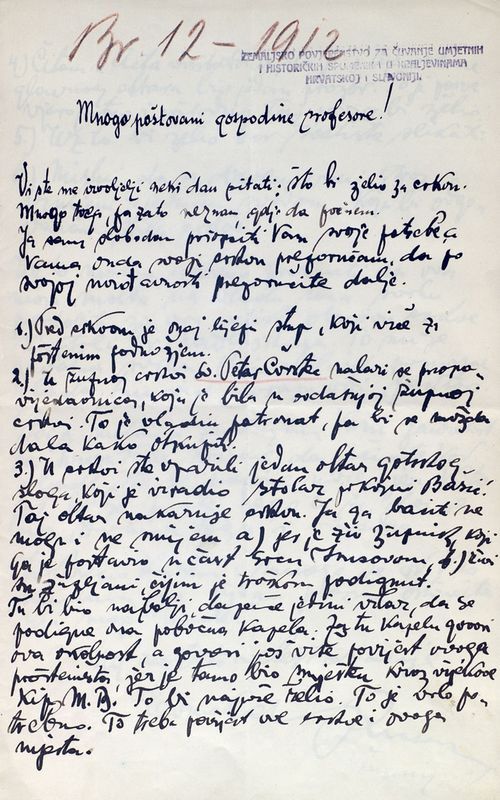 Br. 12 - 1912
ZEMALJSKO POVJERENSTVO ZA ČUVANJE UMJETNIH
I HISTORIČKIH SPOMENIKA U KRALJEVINAMA
HRVATSKOJ I SLAVONIJI.
Mnogo poštovani gospodine profesore!
Vi ste me izvoljeli neki dan pitati: što bi želio za crkvu.
Mnogo toga, pa zato neznam, gdje da počnem.
Ja sam slobodan priopćiti Vam svoje
Vama onda svoju crkvu preporučam, da po
svojoj uvidjavnosti preporučite dalje.
1.) Pred crkvom je onaj lijepi stup, koji viče za
poštenim podnožjem.
2.) U župnoj crkvi sv. Petar Čvrstec nalazi se propo-
vijedaonica, koja je bila u ovdašnjoj župnoj
crkvi. To je vladin patronat, pa bi se možda
dala kako otkupiti.
3.) U crkvi ste opazili jedan oltar gotskog
sloga, koji je izradio stolar pokojni
Taj oltar nakaruje crkvu. Ja ga baciti ne
mogu i ne smijem a) jer je živ župnik, koji
ga je postavio u čast Srcu Isusovom, b.) živi
su župljani čijim je troškom podignut.
Tu bi bio najbolji, da jedini izlaz, da se
podigne ona pobočna kapela. Za tu kapelu govori
ova okolnost, a govori još više povijest ovoga
prošteništa, jer je tamo bio smješten kroz vijekove
kip M. B. To bi najprije želio. To je vrlo po-
trebno. To treba povijest ove crkve i ovoga
mjesta.